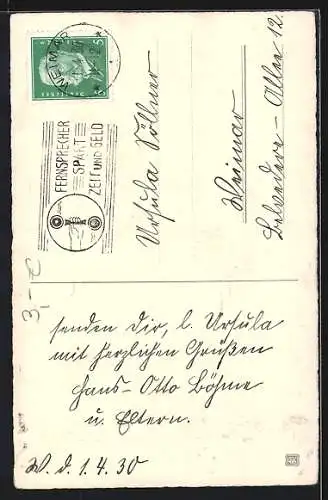 WEIMAR
FERNSPRECHER
SPART
ZEIT UND GELD
Ursula Töllner
Weimar
Belvedere-Allee 12.
3,-
senden Dir, l. Ursula
mit herzlichen Grüßen
Hans-Otto Böhme
u. Eltern.
W. d. 1.4.30